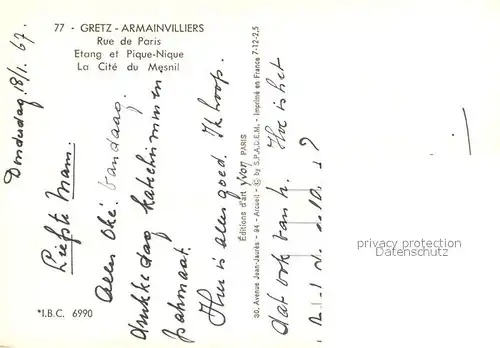 77 - GRETZ - ARMAINVILLIERS
Rue de Paris
Etang et Pique-Nique
La Cité du Mesnil
Donderdag 18/1. 67.
Liefste Mam.
Alles Oké. Vandaag.
drukke dag
Hier is alles goed. Ik hoop.
dat ook van h. Hoe is het
Editions d'art yvon PARIS
30, Avenue Jean-Jaurès - 94 - Arcueil - © by S.P.A.D.E.M. - Imprimé en France 7-12-2,5
*I.B.C. 6990
privacy protection
Datenschutz